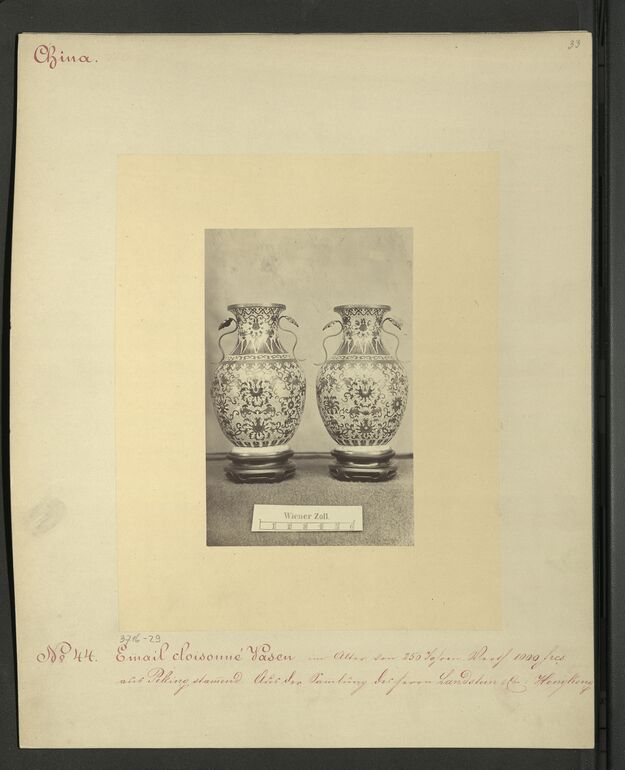 China.
33
Wiener Zoll.
3716-29
№ 44. Email cloisonné Vasen im Alter von 250 Jahren Werth 1000 frcs
aus Peking stamend. Aus der Samlung des Herrn Landstein & Co. Hongkong